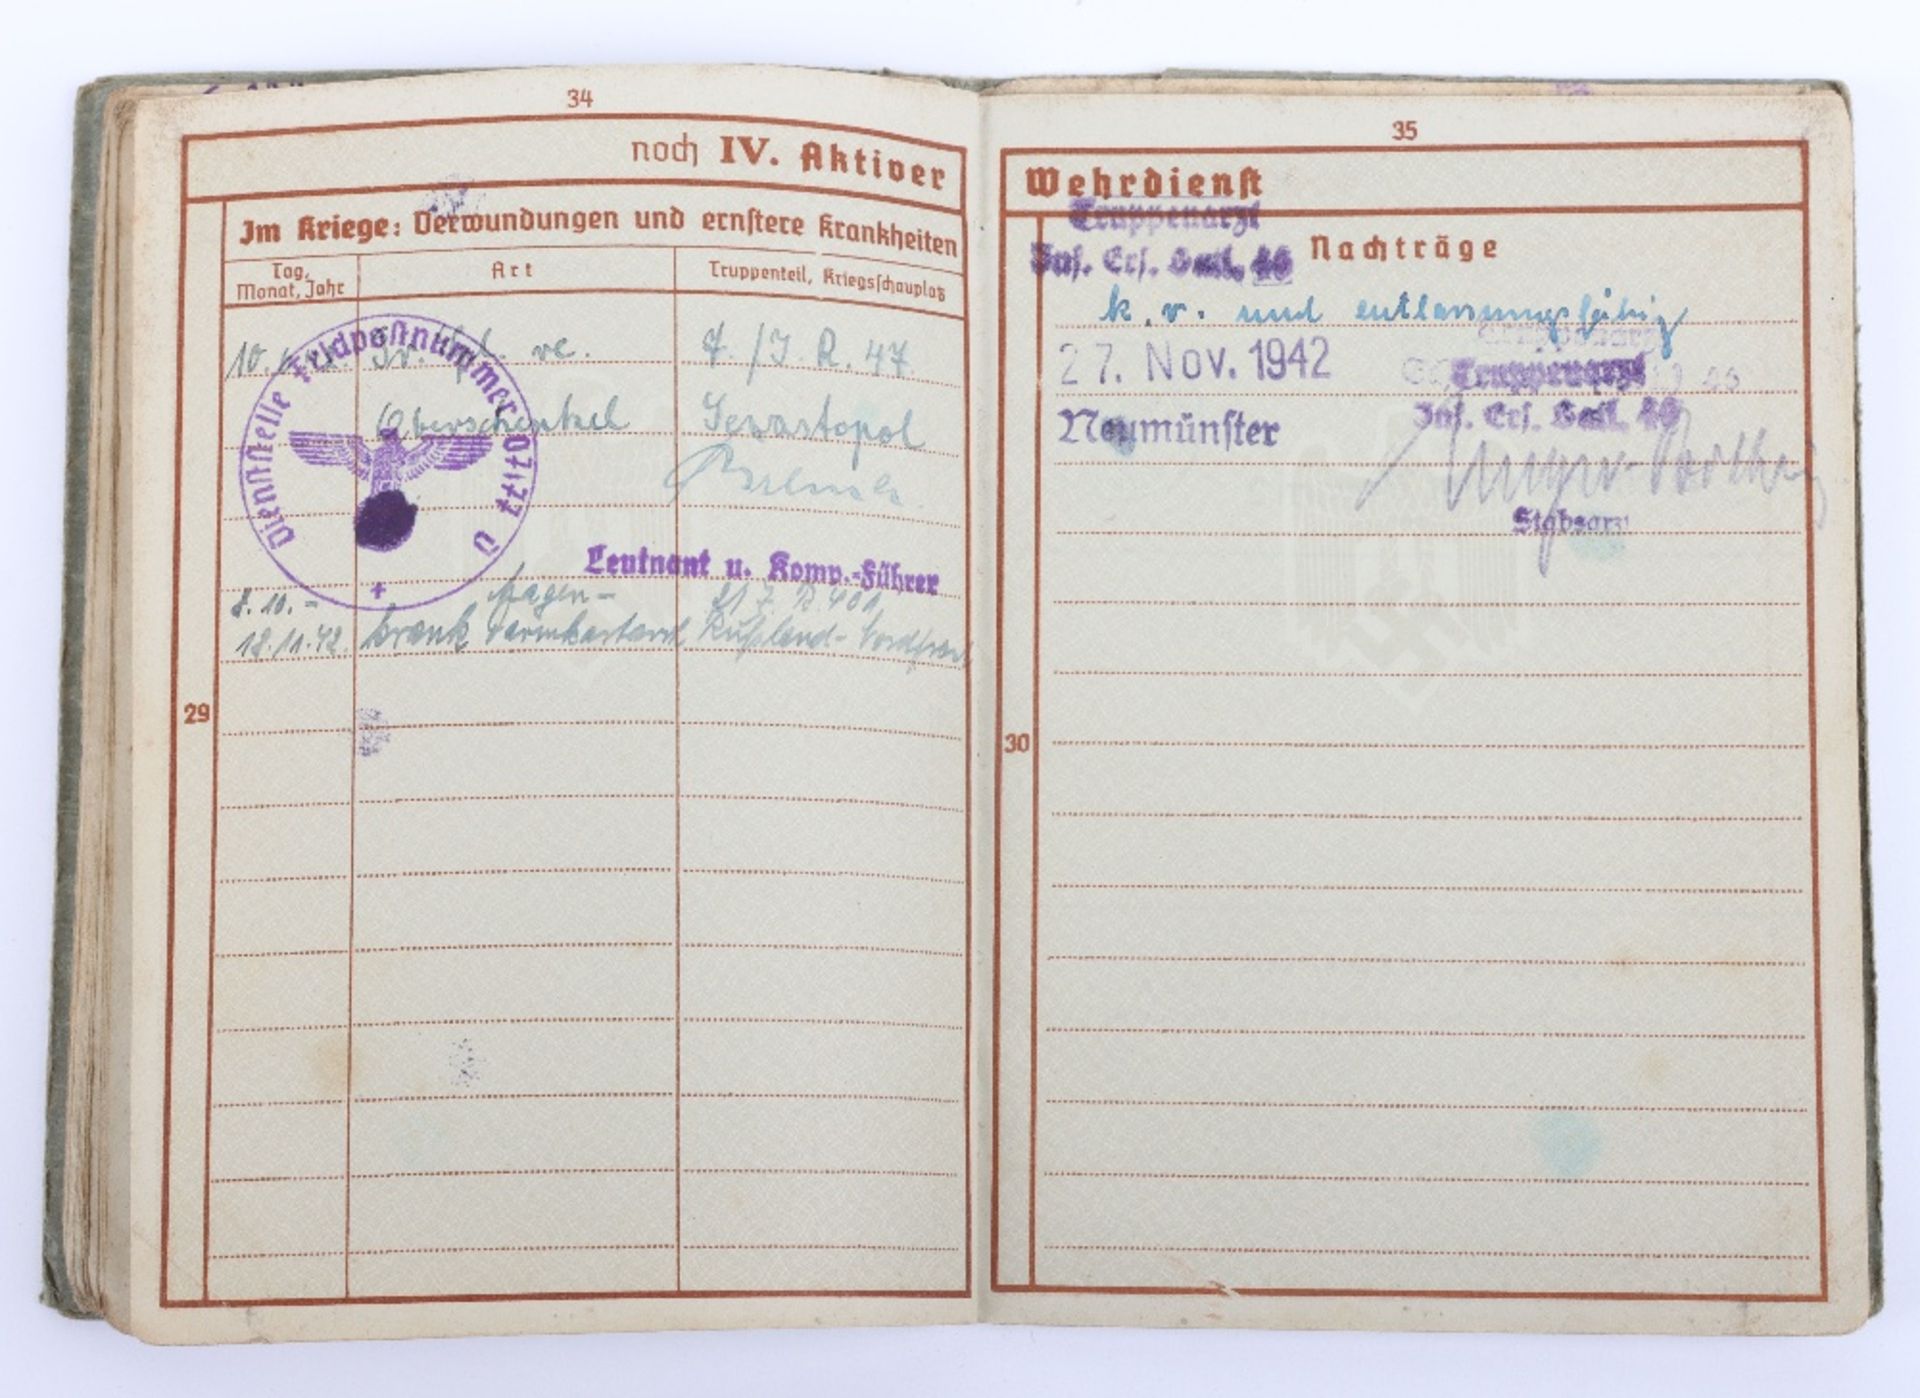 34
noch IV. Aktiver
Im Kriege: Verwundungen und ernstere Krankheiten
Tag, Monat, Jahr
Art
Truppenteil, Kriegsschauplatz
Dienststelle Feldpostnummer 07177 D
10.
7./I.R. 47
Oberschenkel
Sewastopol
Leutnant u. Komp.-Führer
8.10.-
Magen-
18.11.42.
krank Darmkatarrh
Rußland-
29
35
Wehrdienst
Truppenarzt
Inf. Ers. Batl. 46
Nachträge
k.v. und entlassungsfähig
27. Nov. 1942
Truppenarzt
Neumünster
Inf. Ers. Batl. 46
Stabsarzt
30